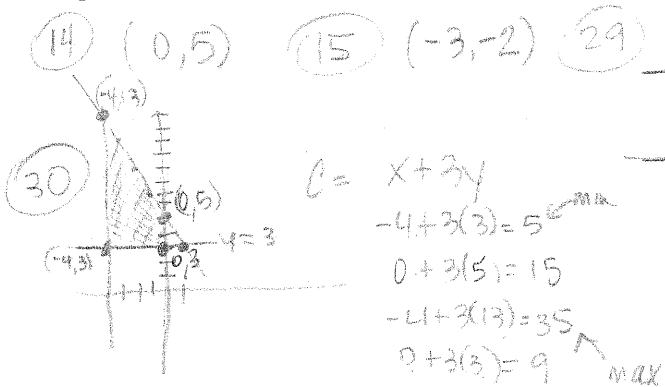 14 (0,5) 15 (-3,-2) 29
30
(0,5)
(-4,3)
y = 3
C = x + 3y
-4 + 3(3) = 5
0 + 3(5) = 15
-4 + 3(13) = 35
0 + 3(3) = 9
max